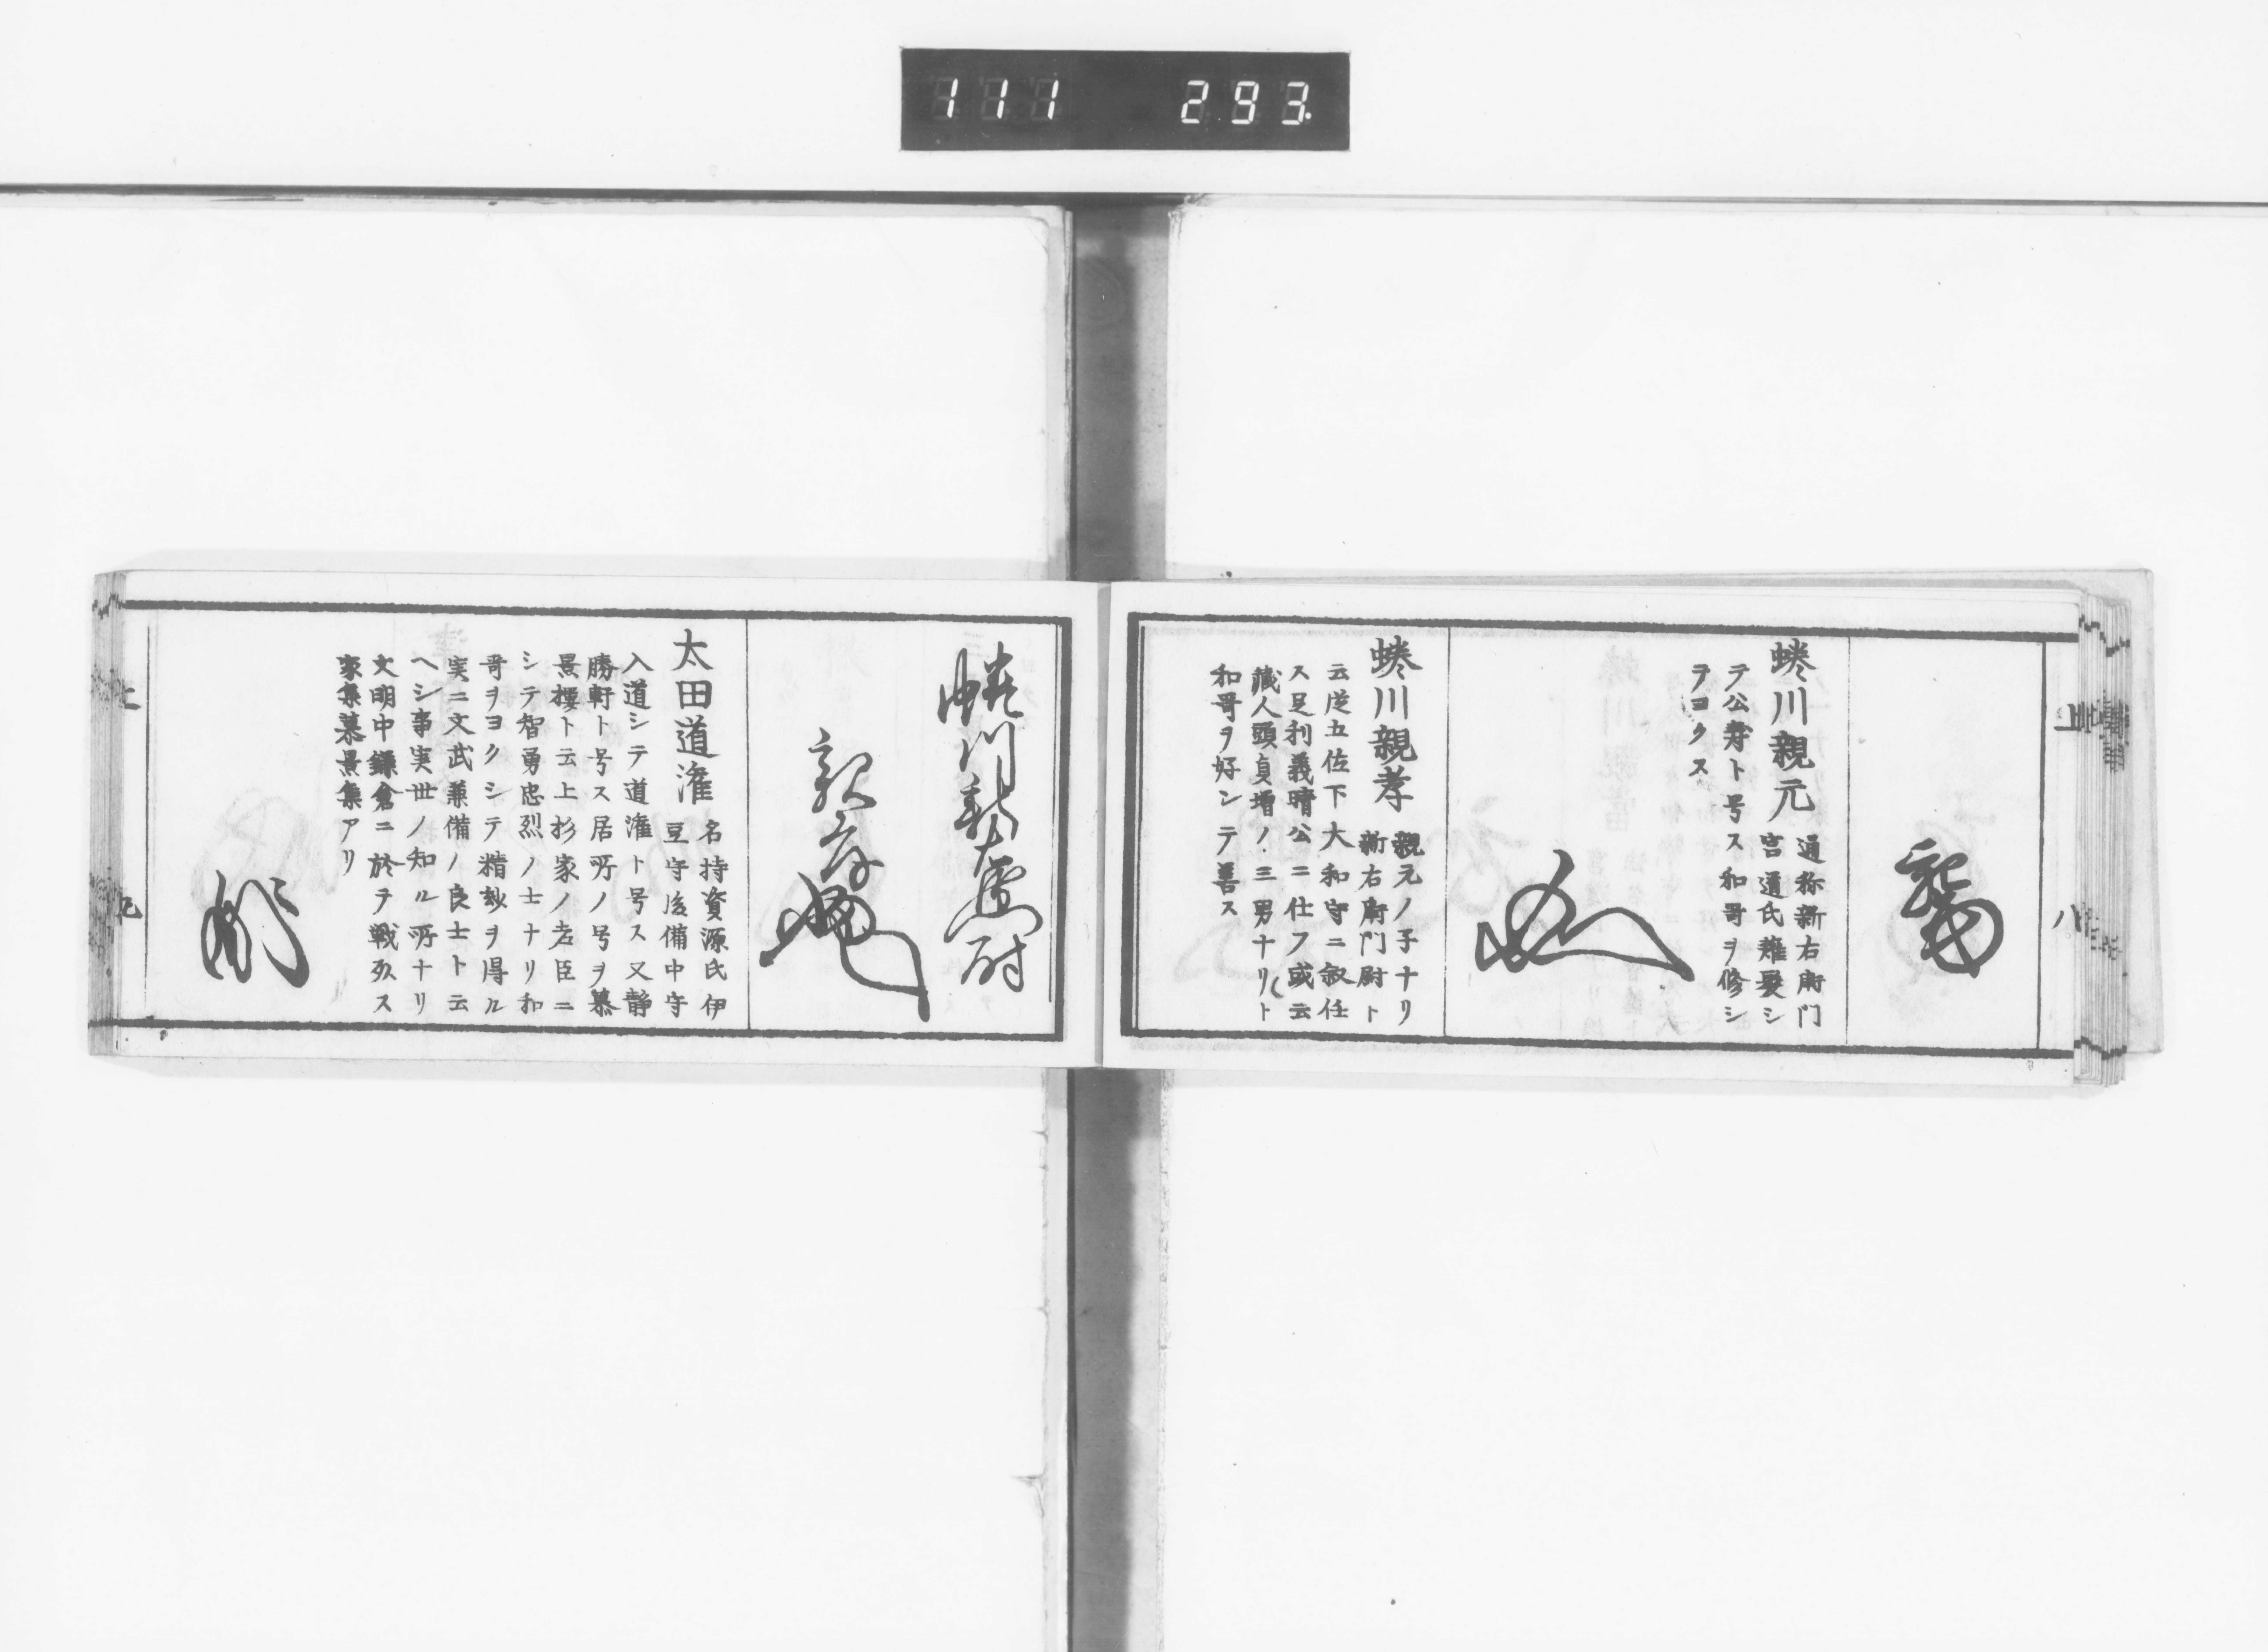 111 293
蜷川親元
通称新右衛門
宮道氏薙髪シ
テ公寿ト号ス和哥ヲ修シ
テヨクス
蜷川親孝
親元ノ子ナリ
新右衛門尉ト
云従五佐下大和守ニ叙任
ス足利義晴公ニ仕フ或云
蔵人頭貞増ノ三男ナリト
和哥ヲ好ンテ善ス
蜷川新右衛門尉
親孝
太田道潅
名持資源氏伊
豆守後備中守
入道シテ道潅ト号ス又静
勝軒ト号ス居所ノ号ヲ慕
景楼ト云上杉家ノ老臣ニ
シテ智勇忠烈ノ士ナリ和
哥ヲヨクシテ精妙ヲ得ル
実ニ文武兼備ノ良士ト云
ヘシ事実世ノ知ル所ナリ
文明中鎌倉ニ於テ戦死ス
家集慕景集アリ